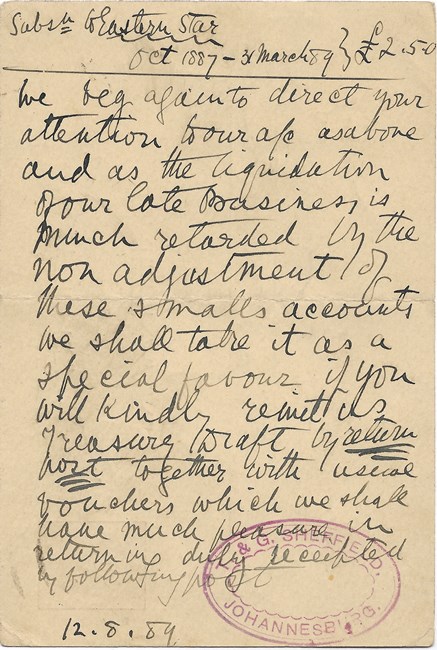 Subsn to Eastern Star
Oct 1887 - 31 March 89 } £2.5.0
We beg again to direct your
attention to our a/c as above
and as the liquidation
of our late Business is
much retarded by the
non adjustment of
these smalls accounts
we shall take it as a
special favour if you
will kindly remit us
Treasury Draft by return
post together with usual
vouchers which we shall
have much pleasure in
returning duly receipted
by following post
12.8.89
& G. SHEFFIELD.
JOHANNESBURG.